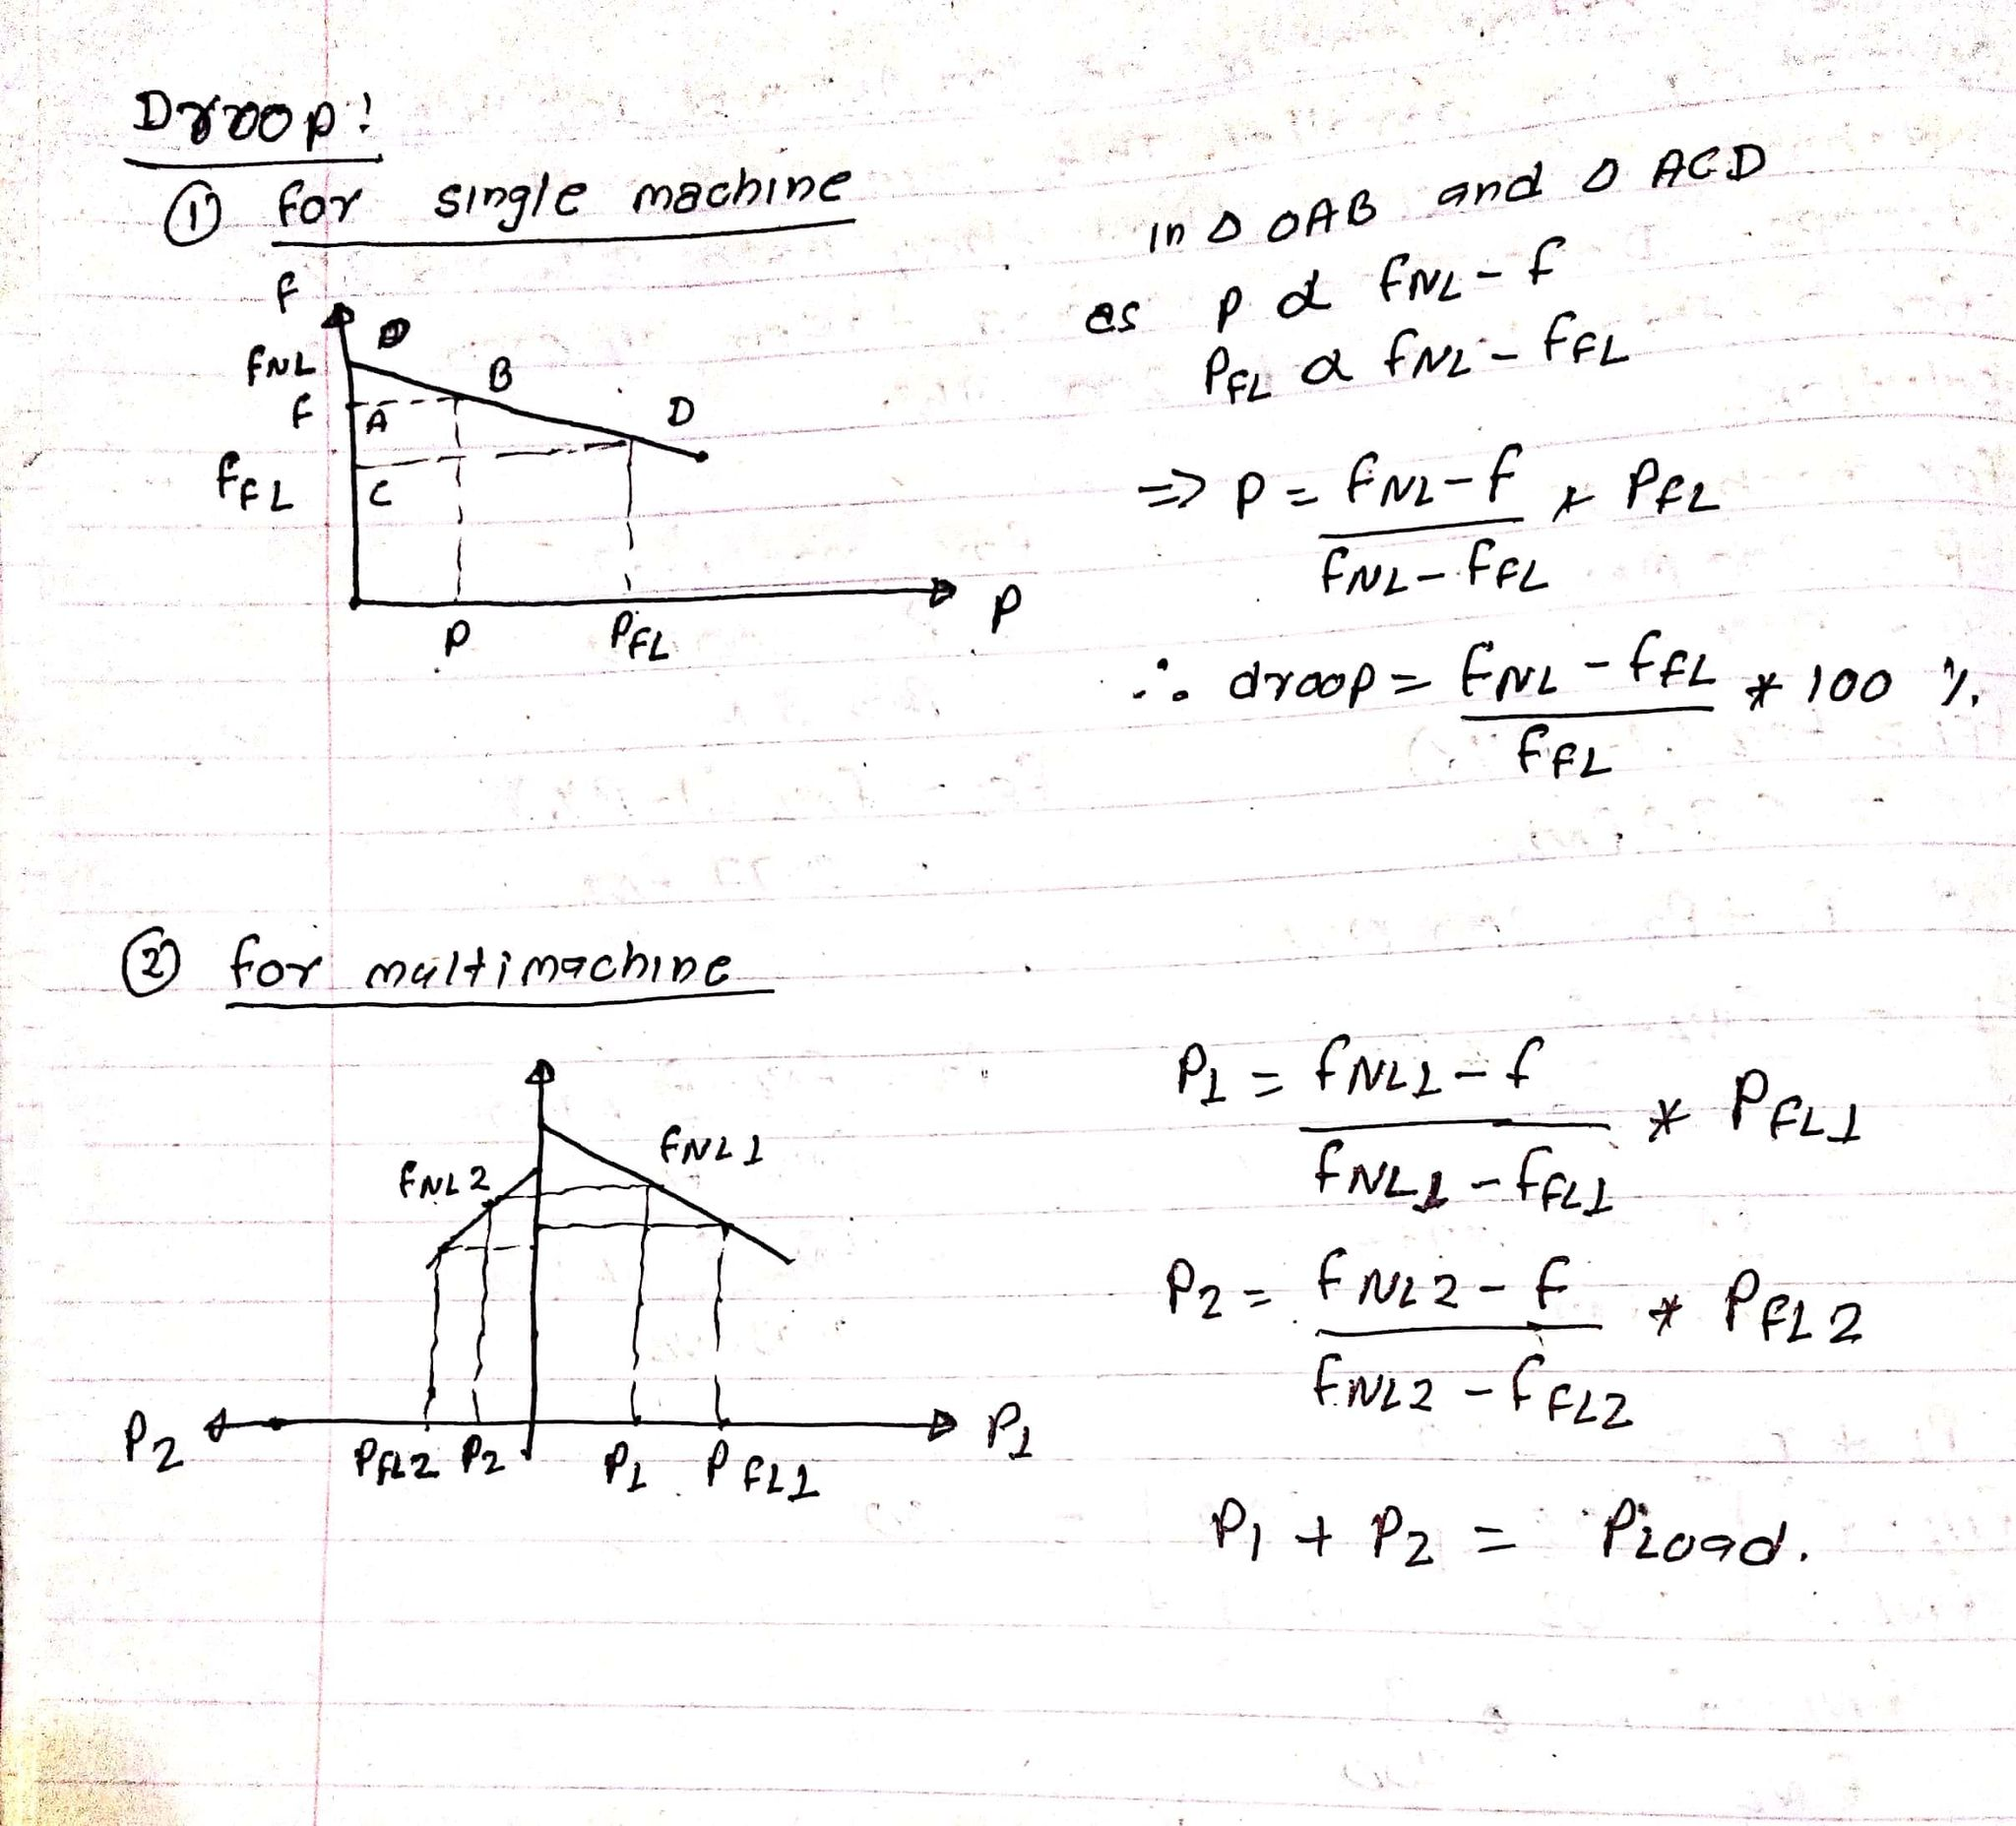 Droop:
① for single machine
f
fNL
f
fFL
O
A
B
C
D
P
PFL
P
in Δ OAB and Δ ACD
as P α fNL - f
PFL α fNL - fFL
=> P = fNL - f / fNL - fFL * PFL
∴ droop = fNL - fFL / fFL * 100 %
② for multimachine
fNL2
fNL1
P2
PFL2 P2
P1 PFL1
P1
P1 = fNL1 - f / fNL1 - fFL1 * PFL1
P2 = fNL2 - f / fNL2 - fFL2 * PFL2
P1 + P2 = PLoad.